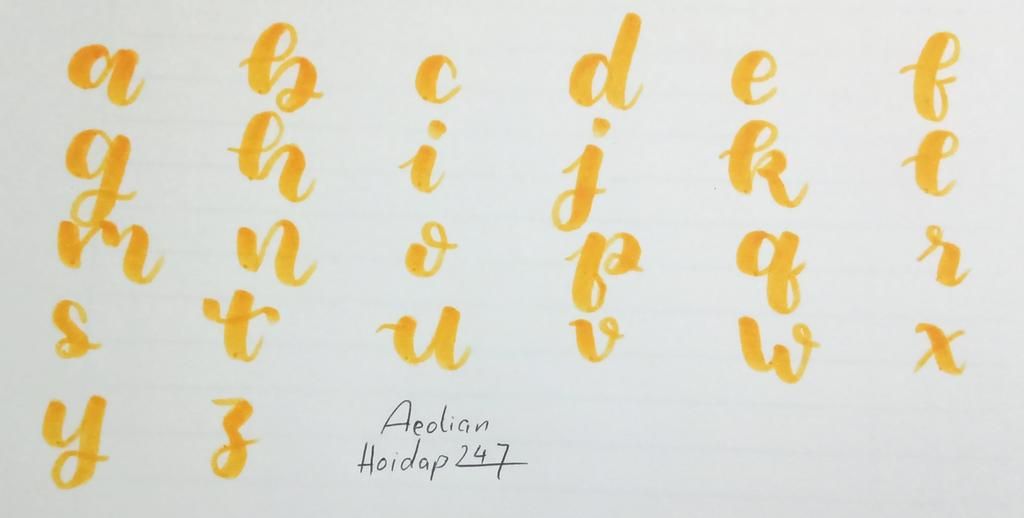 a b c d e f
g h i j k l
m n o p q r
s t u v w x
y z
Aeolian
Hoidap247